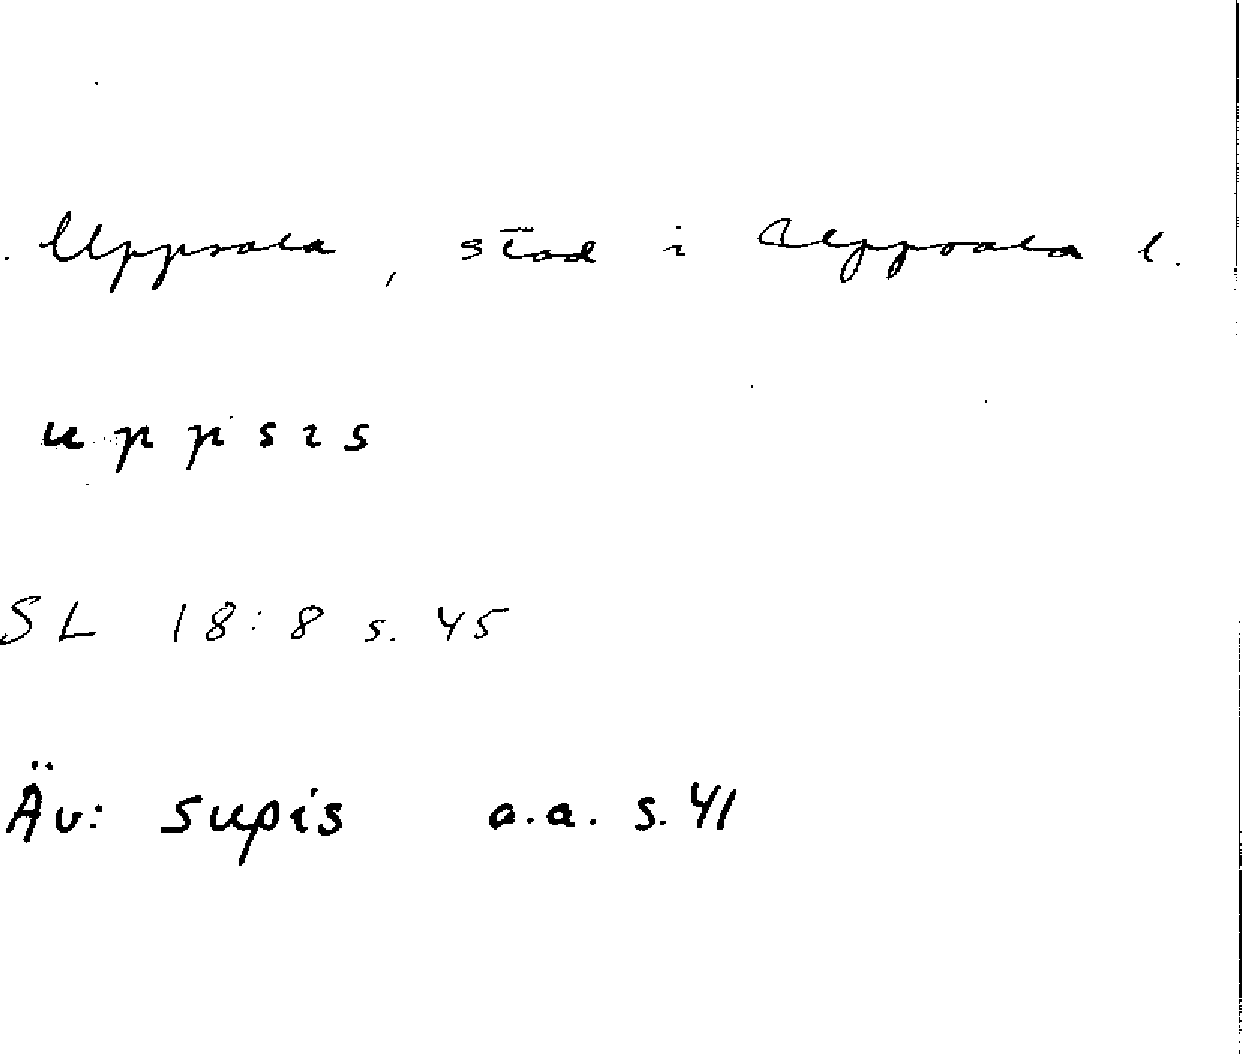 Uppsala, stad i Uppsala l.
uppsis
SL 18:8 s. 45
Äv: Supis a.a. s. 41